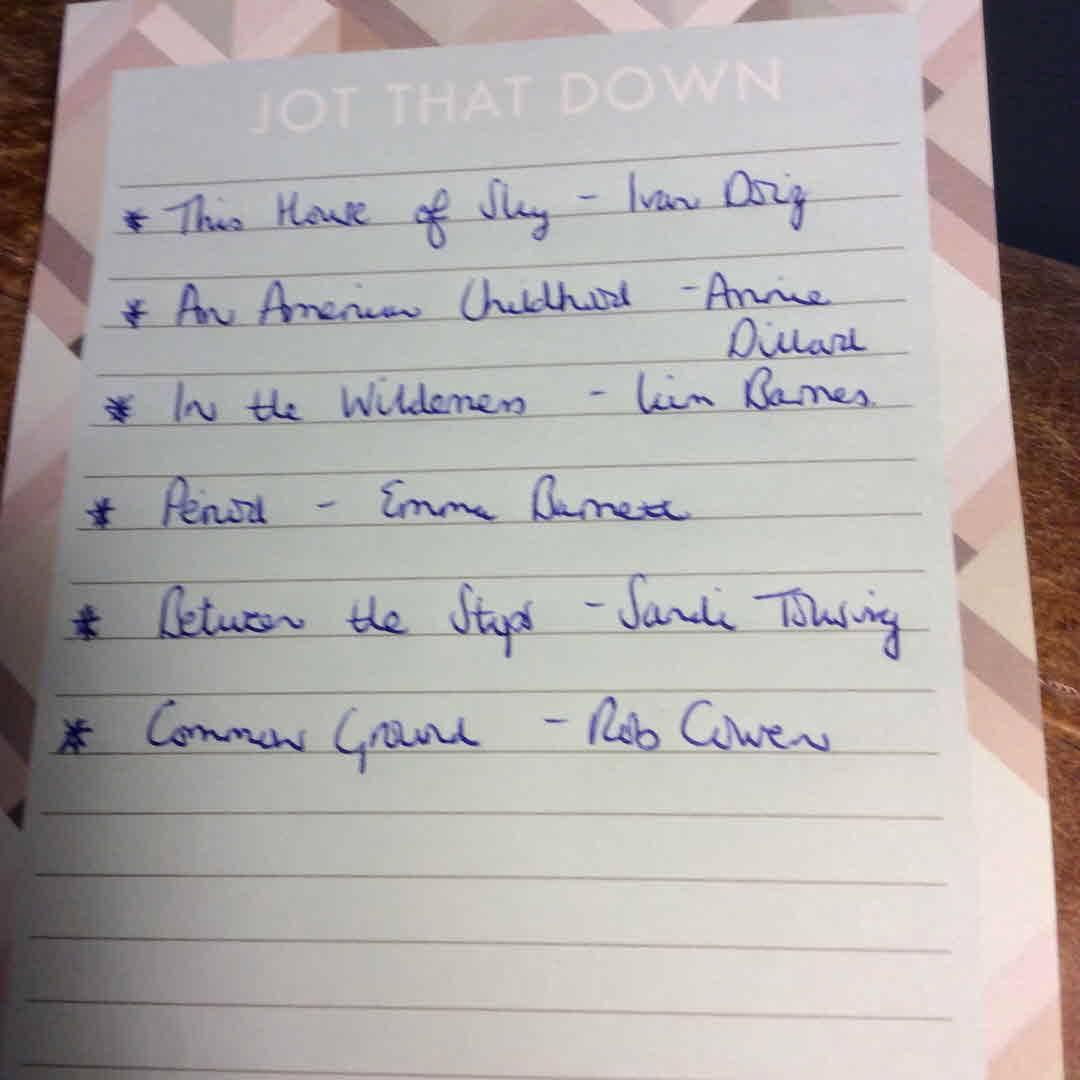 JOT THAT DOWN
* This House of Sky - Ivan Doig
* An American Childhood - Annie
Dillard
* In the Wilderness - Kim Barnes.
* Period - Emma Barnett
* Between the Stops - Sandi Toksvig
* Common Ground - Rob Cowen